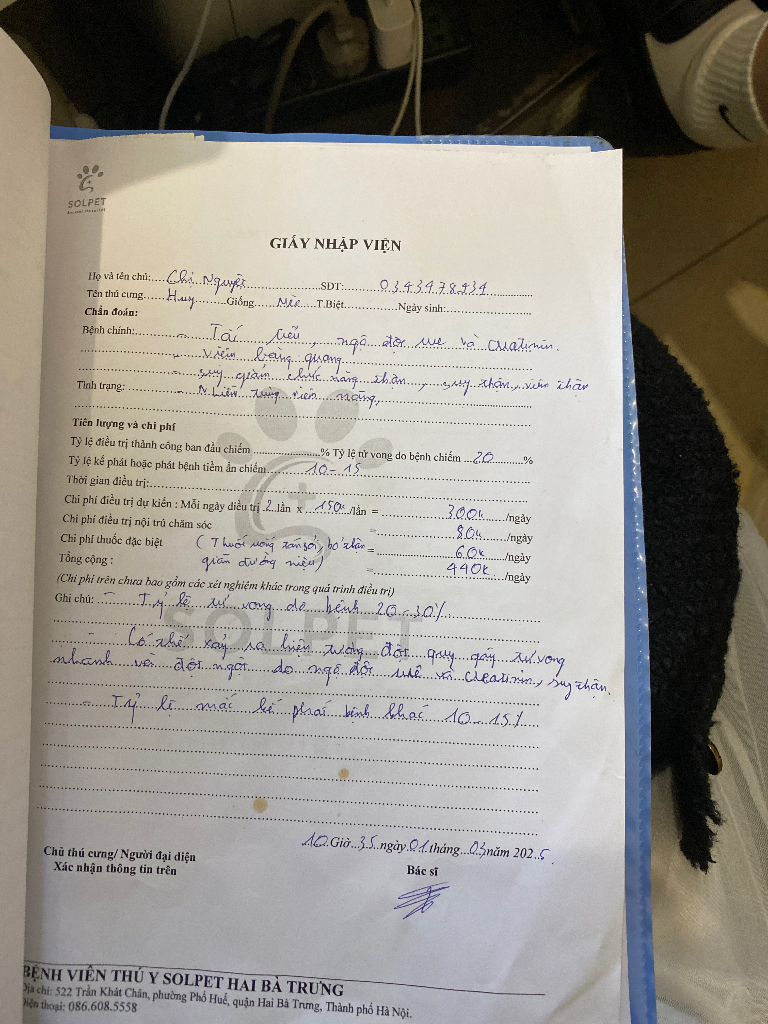 SOLPET
GIẤY NHẬP VIỆN
Họ và tên chủ: Chị Nguyệt SĐT: 0343478234
Tên thú cưng Huy Giống Mèo T.Biệt Ngày sinh:
Chẩn đoán:
Bệnh chính: - Tắc tiểu, ngộ độc ure và creatinin.
- Viêm bàng quang
- suy giảm chức năng thận, suy thận, viêm thận
Tình trạng: - Nhiễm trùng viêm nặng,
Tiên lượng và chi phí
Tỷ lệ điều trị thành công ban đầu chiếm % Tỷ lệ tử vong do bệnh chiếm 20 %
Tỷ lệ kế phát hoặc phát bệnh tiềm ẩn chiếm 10-15
Thời gian điều trị:
Chi phí điều trị dự kiến : Mỗi ngày điều trị 2 lần x 150k /lần = 300k /ngày
Chi phí điều trị nội trú chăm sóc = 80k /ngày
Chi phí thuốc đặc biệt ( Thuốc uống tán sỏi, bổ thận = 60k /ngày
giãn đường niệu)
Tổng cộng : = 440k /ngày
(Chi phí trên chưa bao gồm các xét nghiệm khác trong quá trình điều trị)
Ghi chú: - Tỷ lệ tử vong do bệnh 20-30%
- Có thể xảy ra hiện tượng đột quỵ gây tử vong
nhanh và đột ngột do ngộ độc urê và creatinin, suy thận.
- Tỷ lệ mắc kế phát bệnh khác 10-15%
10 Giờ 35 ngày 01 tháng 03 năm 2025.
Chủ thú cưng/ Người đại diện
Xác nhận thông tin trên
Bác sĩ
BỆNH VIỆN THÚ Y SOLPET HAI BÀ TRƯNG
Địa chỉ: 522 Trần Khát Chân, phường Phố Huế, quận Hai Bà Trưng, Thành phố Hà Nội.
Điện thoại: 086.608.5558